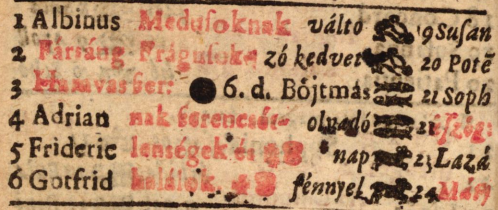 1 Albinus Medusoknak válto 19 Susan
2 Fársáng Frágusok zó kedvet 20 Potē
3 Hamvas szer: 6. d. Bőjtmás 21 Soph
4 Adrian nak szerencsét- olvadó
5 Frideric lenségek és nap 23 Lazá
6 Gotfrid halálok. fénnyel 24 Máty